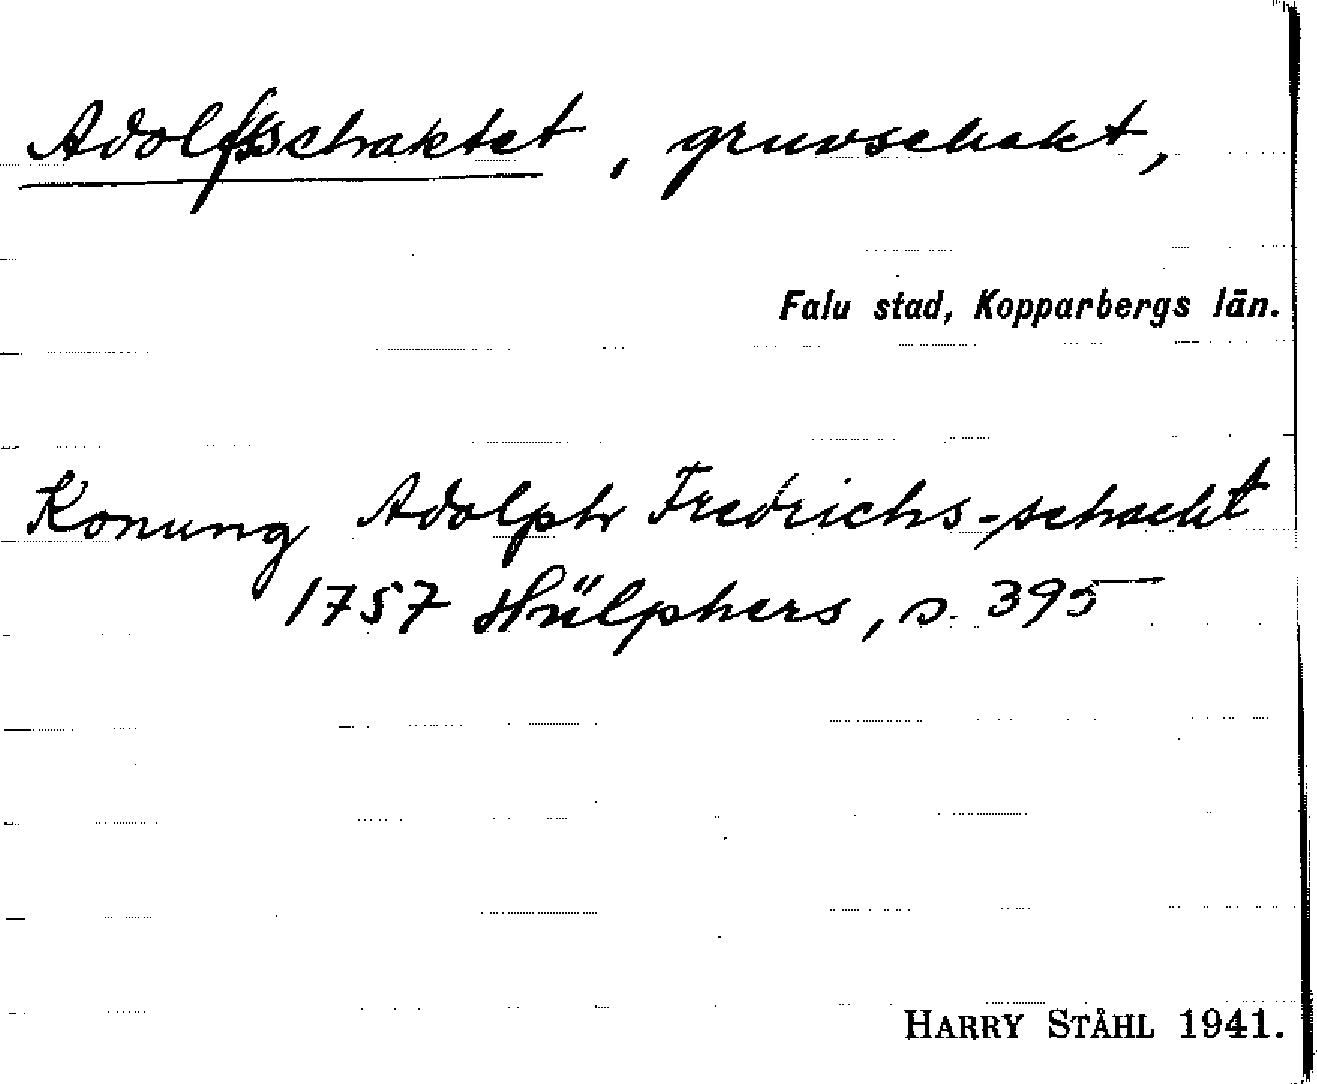 Adolfsschaktet, gruvschakt,
Falu stad, Kopparbergs län.
Konung Adolph Fredrichs-schackt
1757 Hülphers, s. 395
HARRY STÅHL 1941.